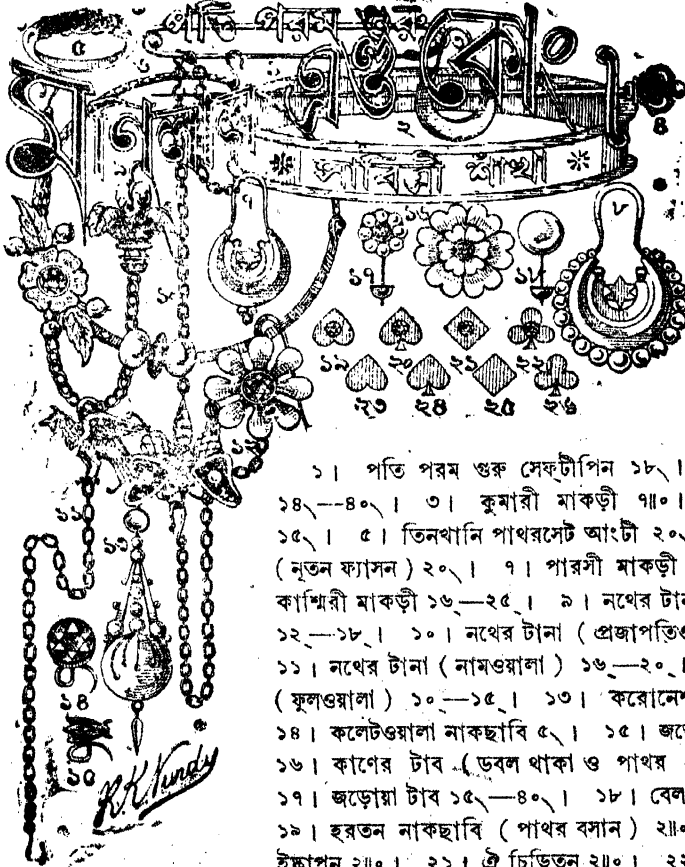 পতি পরম গুরু
৫
২
৪
সাবিত্রী শাঁখা
৭
১৬
৮
১৭
১৮
১৯ ২০ ২১ ২২
২৩ ২৪ ২৫ ২৬
১। পতি পরম গুরু সেফ্‌টীপিন ১৮৲।
১৪৲—৪০৲। ৩। কুমারী মাকড়ী ৭॥০।
১৫৲। ৫। তিনথানি পাথরসেট আংটী ২০৲
( নূতন ফ্যাসন ) ২০৲। ৭। পারসী মাকড়ী
কাশ্মিরী মাকড়ী ১৬৲—২৫৲। ৯। নথের টান
১২৲—১৮৲। ১০। নথের টানা ( প্রজাপতিও
১১। নথের টানা ( নামওয়ালা ) ১৬৲—২০৲।
( ফুলওয়ালা ) ১০৲—১৫৲। ১৩। করোনেশ
১৪। কলেটওয়ালা নাকছাবি ৫৲। ১৫। জড়ে
১৬। কাণের টাব ( ডবল থাকা ও পাথর
১৭। জড়োয়া টাব ১৫৲—৪০৲। ১৮। বেল
১৯। হরতন নাকছাবি ( পাথর বসান ) ২॥০
ইস্কাপন ২॥০। ২১। ঐ চিড়িতন ২॥০। ২২
১৩
১৪
R.K. Nundy